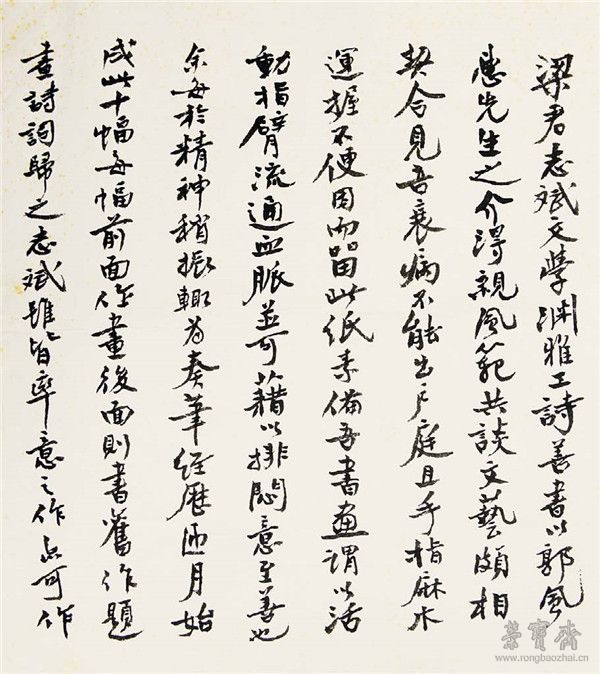 梁君志斌文學淵雅工詩善書以郭風
惠先生之介得親風範共談文藝頗相
契合見吾衰病不能出戶庭且手指麻木
運握不便因而留此紙素備吾書畫謂以活
動指臂流通血脈並可藉以排悶意至善也
余每於精神稍振輒為奏筆經歷匝月始
成此十幅每幅前面作畫後面則書舊作題
畫詩詞歸之志斌雖皆率意之作亦可作
榮寶齋
www.rongbaozhai.cn